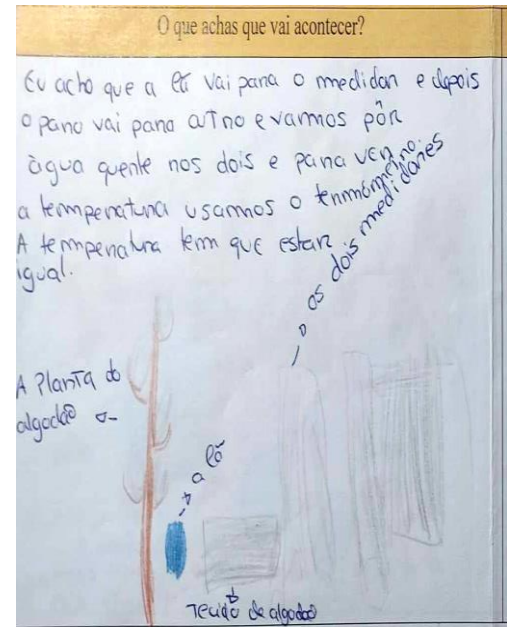 O que achas que vai acontecer?
Eu acho que a lã vai para o medidor e depois
o pano vai para outro e vamos pôr
água quente nos dois e para ver
a temperatura usamos o termómetro.
A temperatura tem que estar
igual.
os dois medidores
A Planta do
algodão
a lã
Tecido de algodão